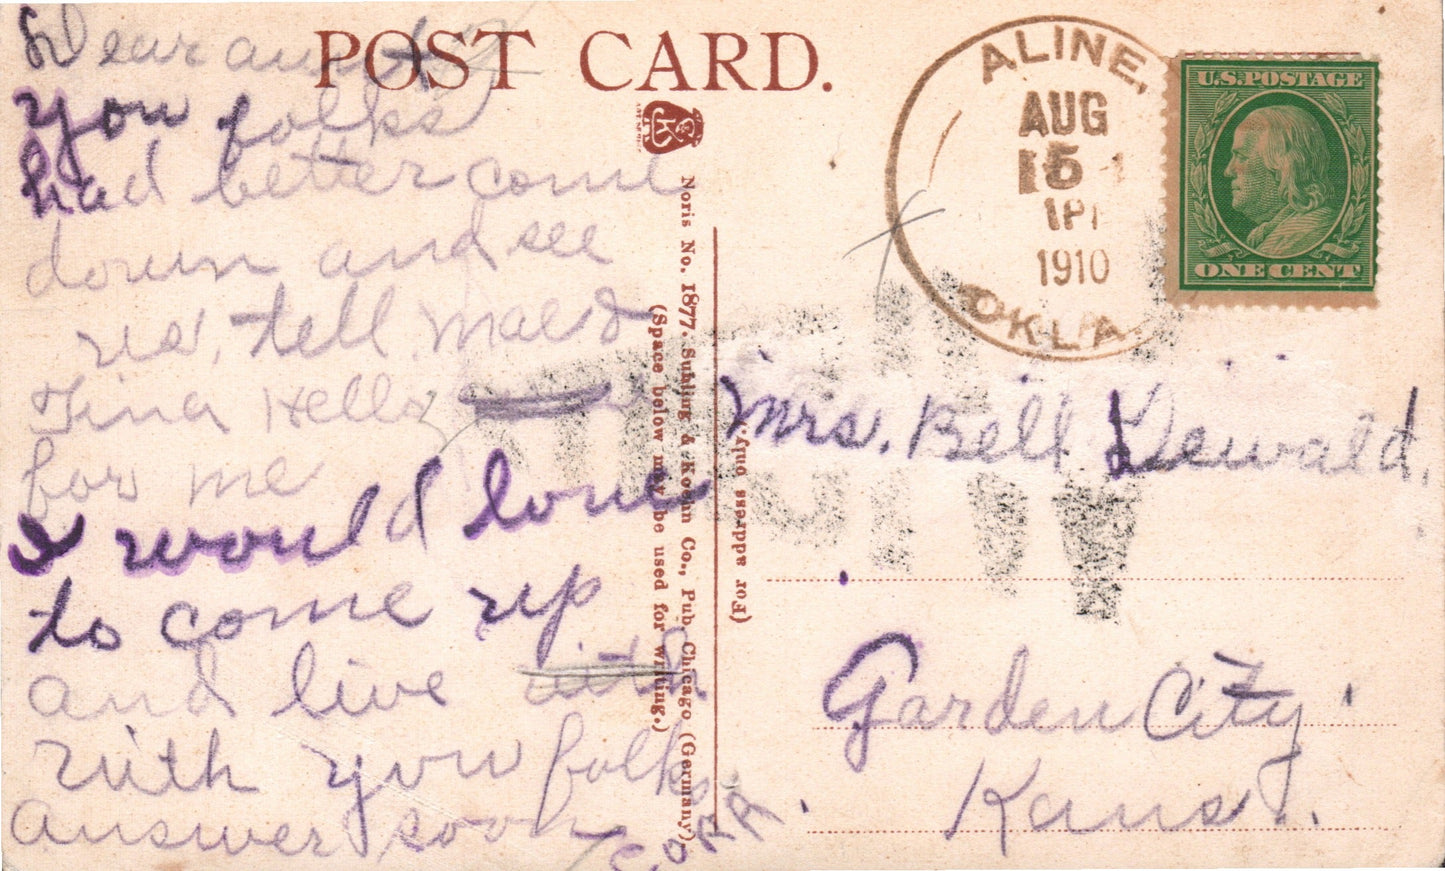 POST CARD.
Dear aunt
you folks
had better come
down and see
us, tell Mae &
Tina Hello
for me
I would love
to come up
and live with
with you folks
answer soon
CORA
Noris No. 1877. Suhling & Koehn Co., Pub. Chicago (Germany)
(Space below may be used for writing.)
(For address only.)
ALINE,
AUG
5
1910
OKLA.
U.S. POSTAGE
ONE CENT
Mrs. Bell Dewald,
Garden City,
Kans.